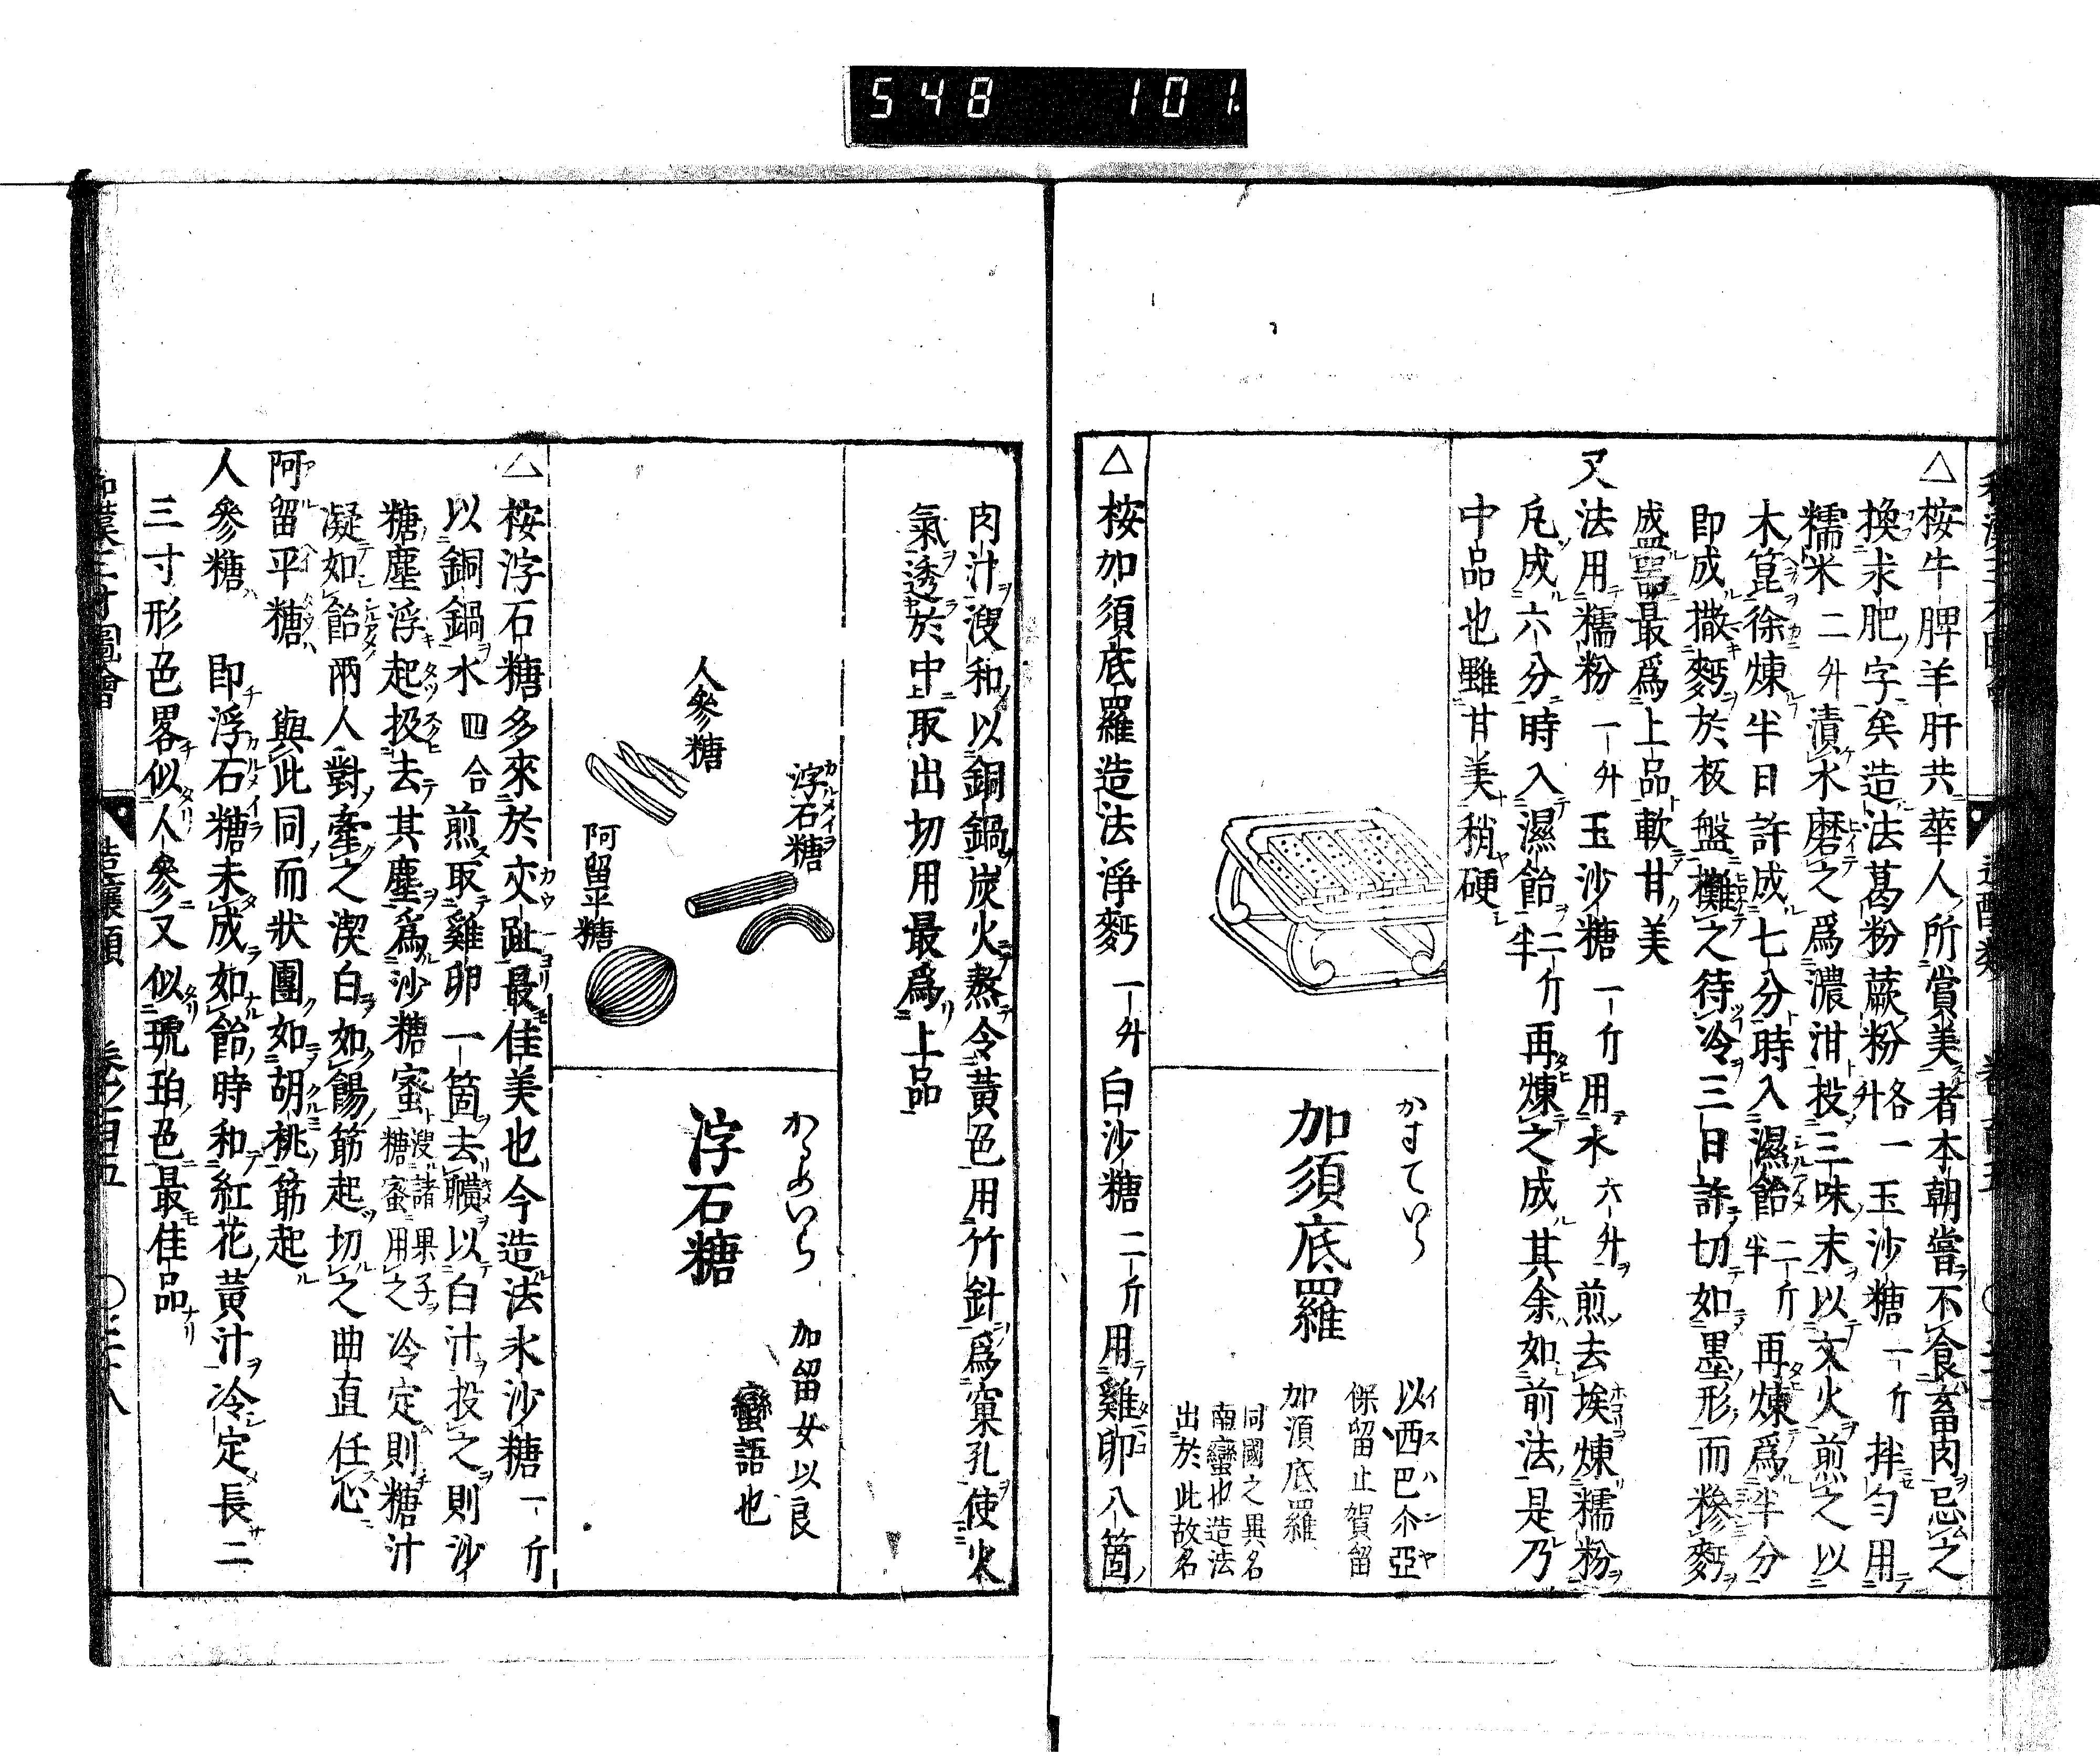 548 101
△桉牛脾羊肝共華人所賞美者本朝嘗不食畜肉忌之
換求肥字矣造法葛粉蕨粉各一升玉沙糖一斤拌勻用
糯米二升漬水磨之爲濃泔投三味末以文火煎之以
木箆徐煉半日許成七分時入濕飴二斤半再煉爲半分
即成撒麪於板盤攤之待冷三日許切如墨形而糝麪
盛噐最爲上品軟甘美
又法用糯粉一升玉沙糖一斤用水六升煎去埃煉糯粉
凡成六分時入濕飴二斤半再煉之成其余如前法是乃
中品也雖甘美稍硬
かすていら
加須底羅
以西巴尓亞
保留止賀留
加須底羅
同國之異名
南蠻也造法
出於此故名
△桉加須底羅造法淨麪一升白沙糖二斤用雞卵八箇
肉汁溲和以銅鍋炭火熬令黃色用竹針爲窠孔使火
氣透於中取出切用最爲上品
浮石糖
カルメイラ
人參糖
阿留平糖
かるめいら
浮石糖
加留女以良
蠻語也
△桉浮石糖多來於交趾最佳美也今造法氷沙糖一斤
以銅鍋水四合煎取雞卵一箇去䵃以白汁投之則沙
糖塵浮起扱去其塵爲沙糖蜜溲諸果子糖蜜用之冷定則糖汁
凝如飴兩人對牽之漢白如餳筋起切之曲直任心
阿留平糖 與此同而狀團如胡桃筋起
人參糖 即浮石糖未成如飴時和紅花黃汁冷定長二
三寸形色畧似人參又似琥珀色最佳品